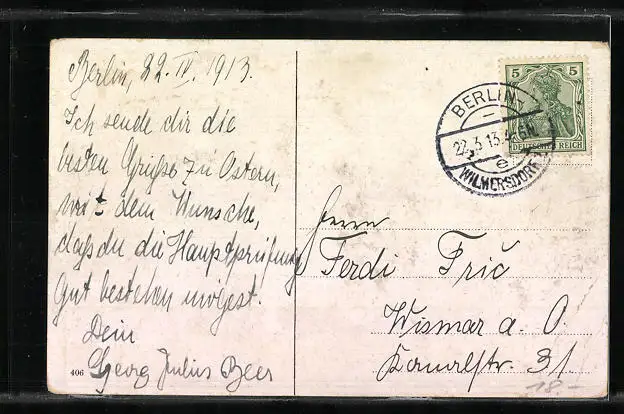 Berlin, 22. IV. 1913.
Ich sende dir die
besten Grüße zu Ostern,
mit dem Wunsche,
daß du die Hauptprüfung
gut bestehen mögest.
Dein
Georg Julius Beer
406
5 5
DEUTSCHES REICH
BERLIN
22.3.13.
WILMERSDORF
e
Herrn
Ferdi Frič
Wismar a. O.
Kanalstr. 31.
18.-